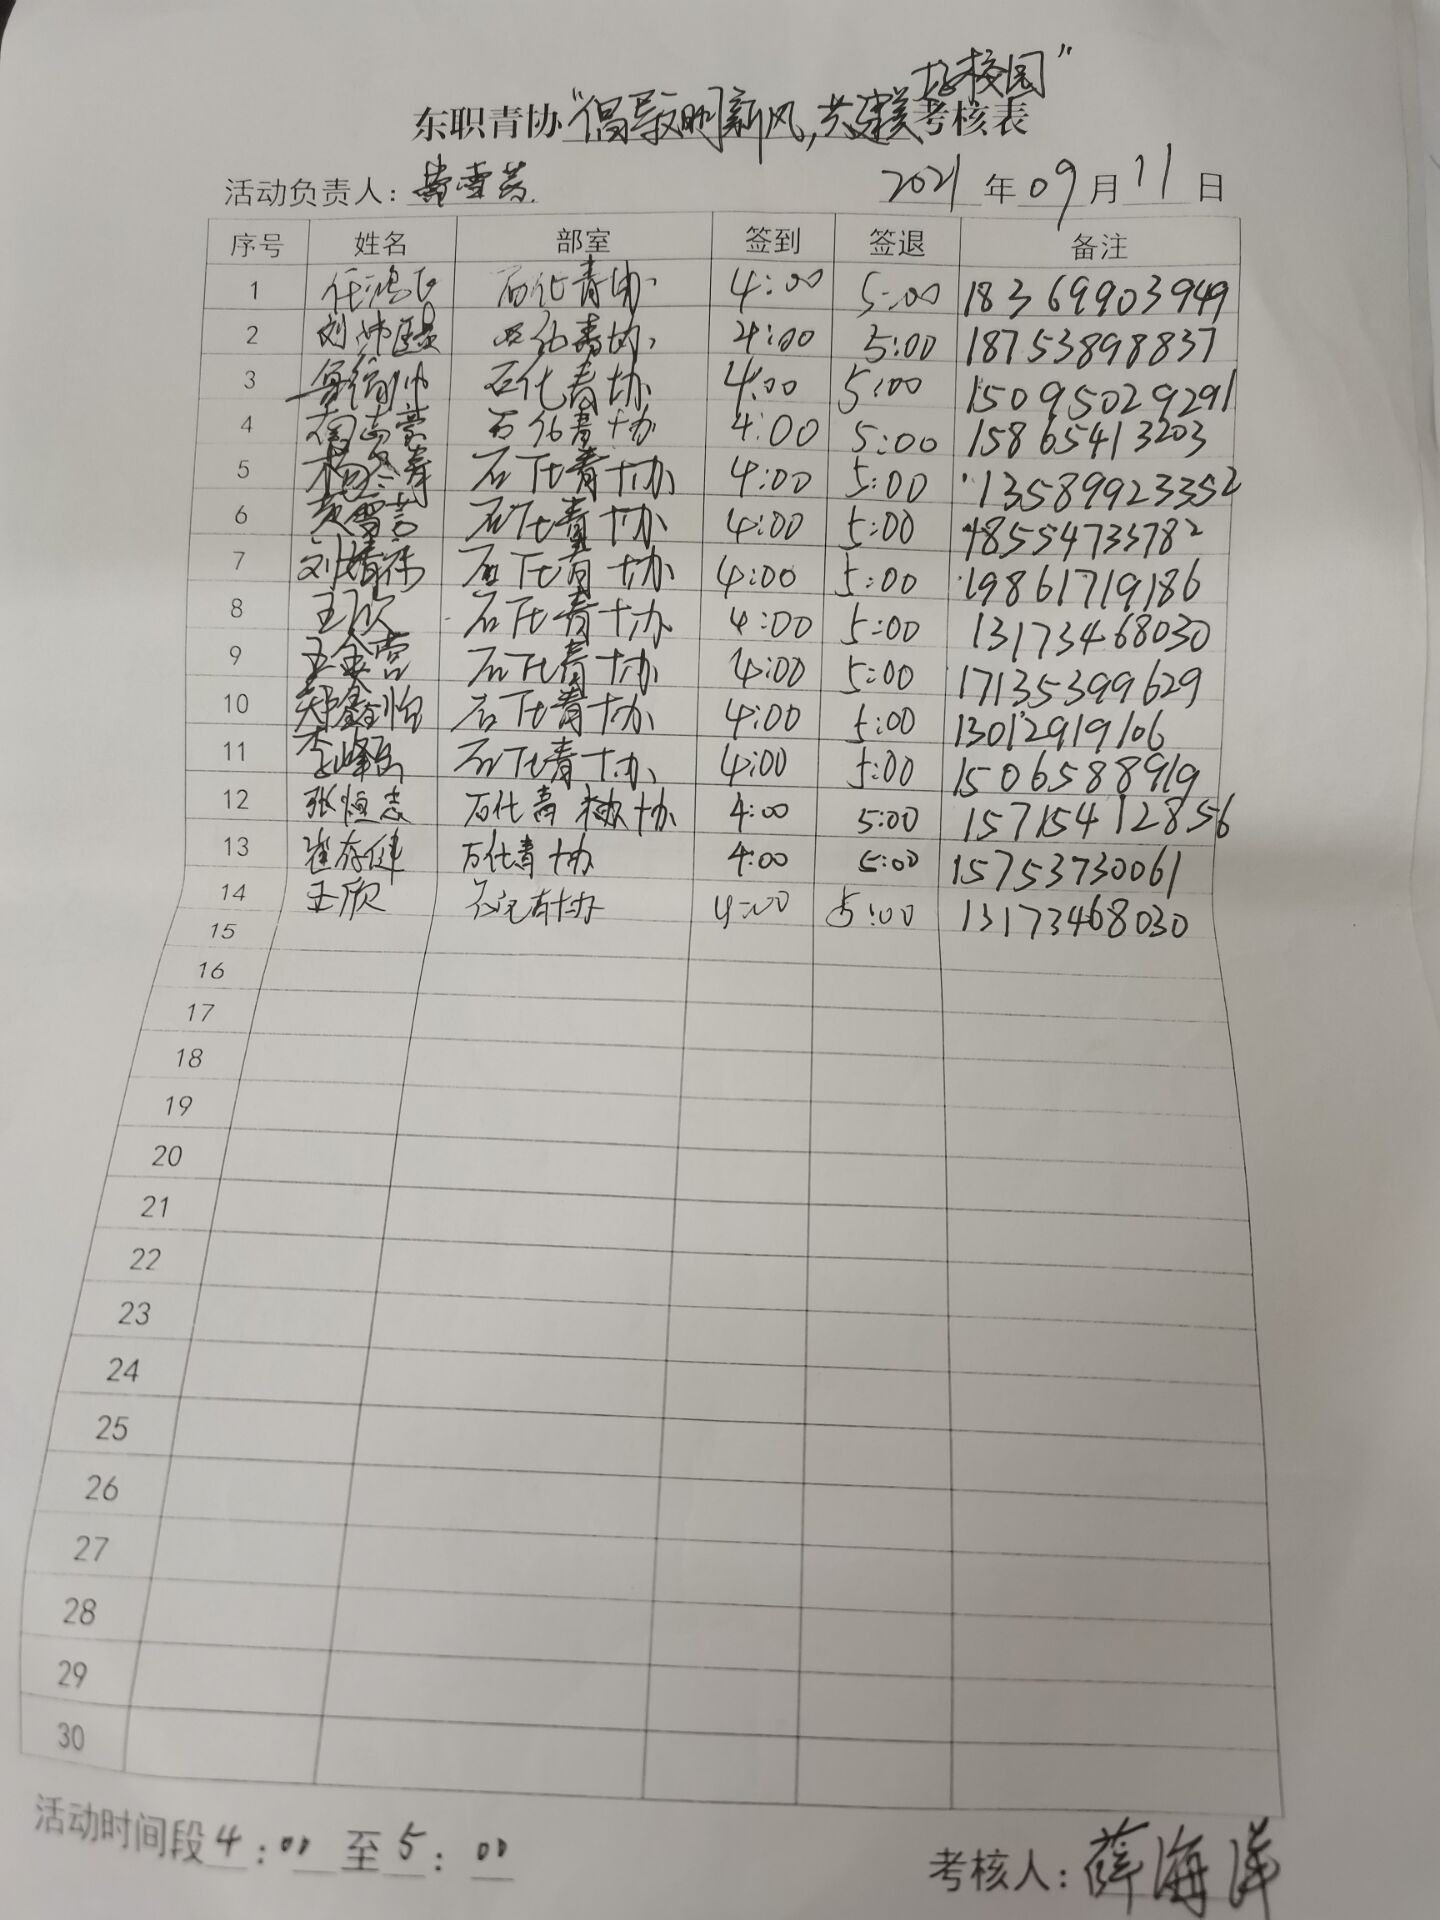 好校园”
东职青协“倡导文明新风,共建美考核表
活动负责人: 2021年09月11日
序号 姓名 部室 签到 签退 备注
1 石化青协 4:00 5:00 18369903949
2 石化青协 4:00 5:00 18753898837
3 石化青协 4:00 5:00 15095029291
4 石化青协 4:00 5:00 15865413203
5 石化青协 4:00 5:00 13589923352
6 石化青协 4:00 5:00 18554733782
7 刘婧 石化青协 4:00 5:00 19861719186
8 王欣 石化青协 4:00 5:00 13173468030
9 王金 石化青协 4:00 5:00 17135399629
10 石化青协 4:00 5:00 13012919106
11 李 石化青协 4:00 5:00 15065888919
12 张恒志 石化青 协 4:00 5:00 15715412856
13 崔存健 石化青协 4:00 5:00 15753730061
14 王欣 青协 4:00 5:00 13173468030
15
16
17
18
19
20
21
22
23
24
25
26
27
28
29
30
活动时间段4:00至5:00
考核人:薛海洋